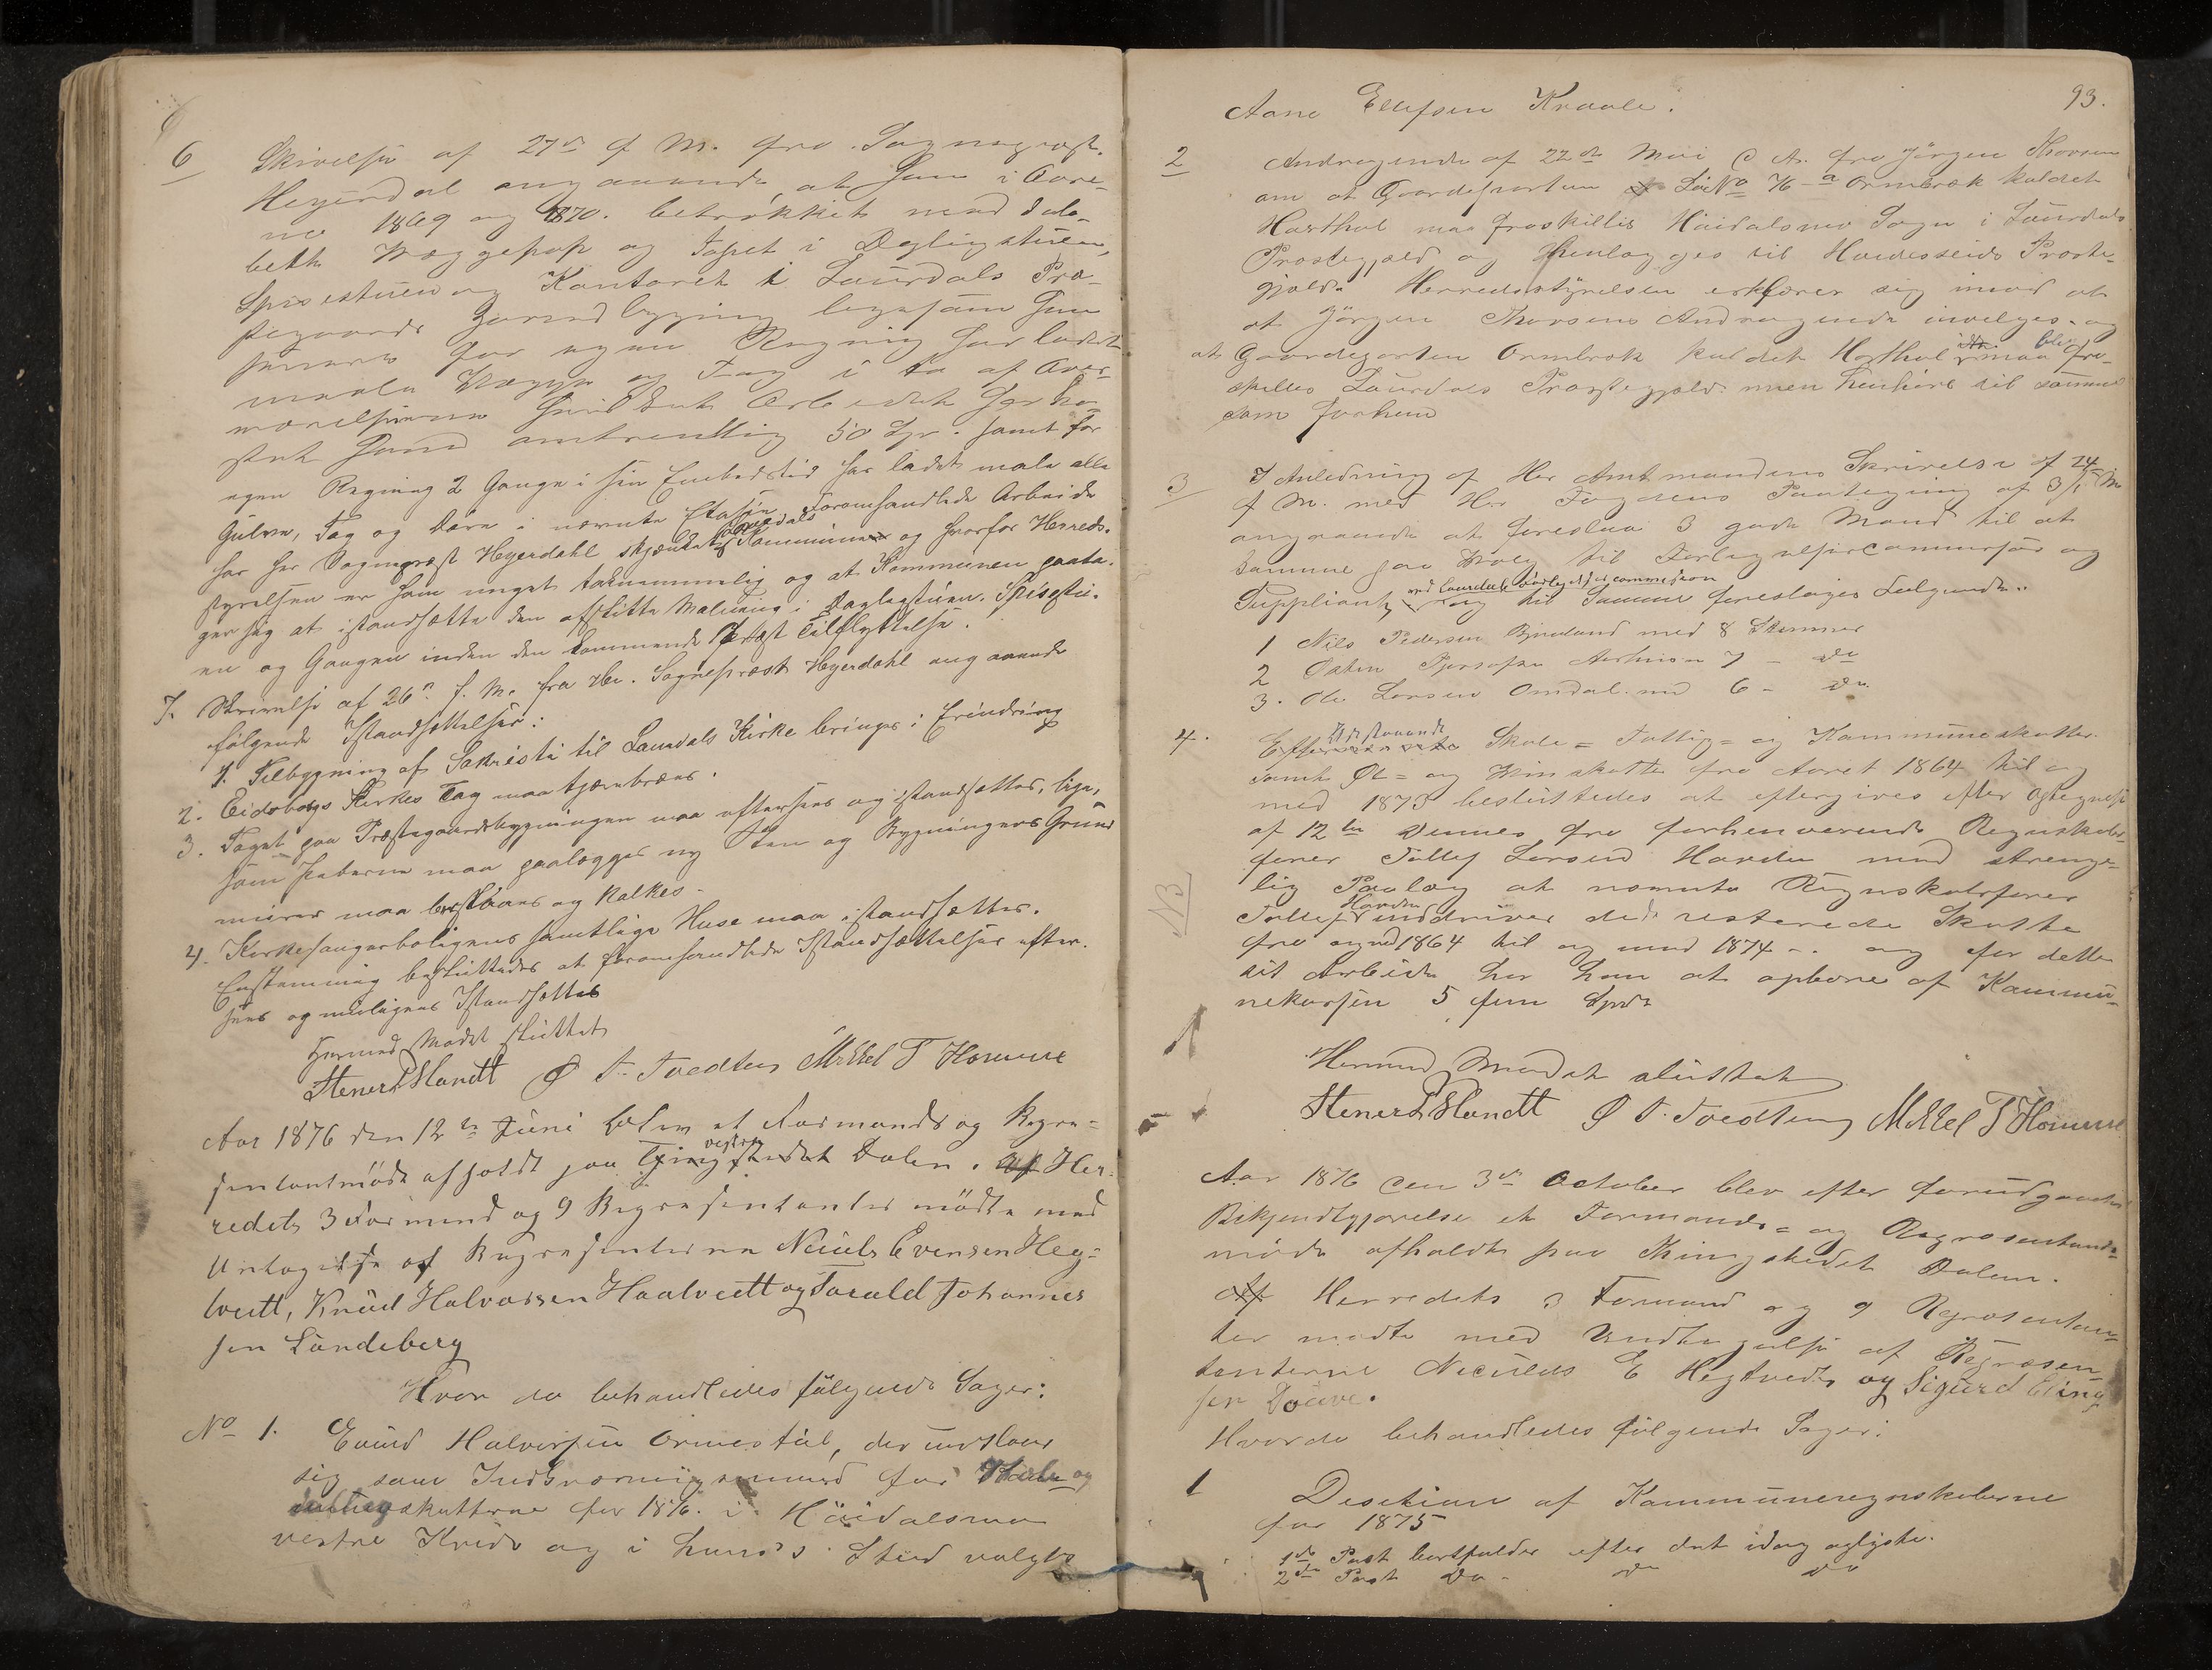 6 Skrivelse af 27de f. M. fra Sognepræst
Heyerdal angaaende, at han i Aare-
ne 1869 og 1870. betrækket med dob-
belt Væggepap og Tapet i Dagligstuen,
Spisestuen og Kontoret i Laurdals Præ-
stegaards Hovedbygning ligesom han
senere for egen Regning har ladet
male Vægge og Tag i to af Være-
relserne hvilket Arbeidet har ko-
stet ham omtrentlig 50 Spd. samt for
egen Regning 2 Gange i sin Embedstid har ladet male alle
Gulve, Tag og Døre i nævnte Etasje. Foromhandlede Arbeide
har Hr Sognepræst Heyerdahl skjænket Laurdals Kommune og hvorfor Herreds-
styrelsen er ham meget taknemmelig og at Kommunen paata-
ger sig at istandsætte den afslitte Maling i Dagligstuen, Spisestu-
en og Gangen inden den kommende Præst Tilflyttelse.
7. Skrivelse af 26de f. M. fra Hr. Sognepræst Heyerdahl angaaende
følgende Istandsættelser:
1. Tilbygning af Sakristi til Laurdals Kirke bringes i Erindring
2. Eidsborgs Kirkes Tag maa tjærebræes.
3. Taget paa Præstegaardsbygningen maa eftersees og istandsættes, lige-
som Piberne maa paalægges ny Sten og Bygningens Grund
murer maa beslaaes og kalkes.
4. Kirkesangerboligens samtlige Huse maa istandsættes.
Enstemmig besluttedes at foromhandlede Istandsættelser efter-
sees og muligens Istandsættes
Hermed Mødet sluttet
Stener T Mandt Ø T. Tvedten Mikkel T Homme
Aar 1876 den 12te Juni blev et Formands og Repræ-
sentantmøde afholdt paa Thingstedet Dalen. Af Her-
redets 3 Formænd og 9 Repræsentanter mødte med
Untagelse af Repræsenterne Niculs Evensen Heg-
tveitt, Knud Halvorsen Haatveitt og Torald Johannes
sen Lundeberg
Hvor da behandledes følgende Sager:
No 1. Eivind Halvorsen Ormestøl, der undslaar
sig som Indkrævningsmand for Skole og
fattigskatterne for 1876. i Høidalsmo
vestre Kreds og i hans's Sted valgtes
93.
Aane Ellefsen Kraale.
2 Andragende af 22de Mai d. A. fra Jørgen Thorsen
om at Gaardeparten LøbNo 76 a Ormbræk kaldet
Hasthol maa fraskilles Høidalsmo Sogn i Laurdals
Præstegjæld og henlægges til Hvideseids Præste-
gjæld. Herredsstyrelsen erklærer sig imod at
at Jørgen Thorsens Andragende indvilges. og
at Gaardeparten Ormbræk kaldet Hasthol maa blive fra-
skilles Laurdals Præstegjæld men henhøre til samme
som forhen
3 I Anledning af Hr Amtmandens Skrivelse af 24
f M. med Hr Fogdens Paategning af 3/6
angaaende at foreslaa 3 gode Mænd til at
samme paa Valg til Forligelsescommissær og
Suppliant, ved Laurdals Forligelsescommission og til Samme foreslages Følgende..
1 Nils Pedersen Bjaaland med 8 Stemmer
2 Østen 7 - Do
3. Ole Larsen Omdal. med 6 - Do
4. Efterstaaende Skole- Fattig- og Kommuneskatter.
samt Øl- og Vinskatte fra Aaret 1864 til og
med 1873 besluttedes at eftergives efter Opregnelse
af 12te Dennes fra forhenværende Regnskabs-
fører Tallef Larsen Havden med strænge-
lig Paalæg at nævnte Regnskabsfører
Tallef Havden inddriver de resterede Skatte
fra og med 1864 til og med 1874 -. og for dette
sit Arbeide har han at opbære af Kommu-
nekassen 5 fem Spd
NB
Hermed Mødet sluttet
Stener T Mandt Ø T. Tvedten Mikkel T Homme
Aar 1876 den 3de October blev efter forudgaaende
Bekjendtgjørelse et Formands- og Repræsentant-
møde afholdt paa Thingstedet Dalen.
Af Herredets 3 Formænd og 9 Repræsentan-
ter mødte med Undtagelse af Repræsen-
tanterne Niculus E Hegtvedt og Sigurd Eling
sen Doave.
Hvor da behandledes følgende Sager:
1 Desition af Kommuneregnskaberne
for 1875
1ste Post bortfalder efter det idag oplyste.
2den Post Do - Do Do